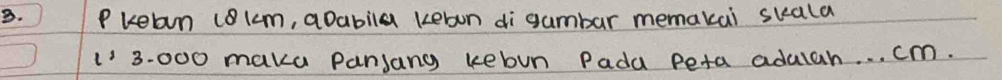 3. P kebun 18 km, apabila kebun di gambar memakai skala
1:3.000 maka Panjang kebun Pada Peta adalah ... cm.